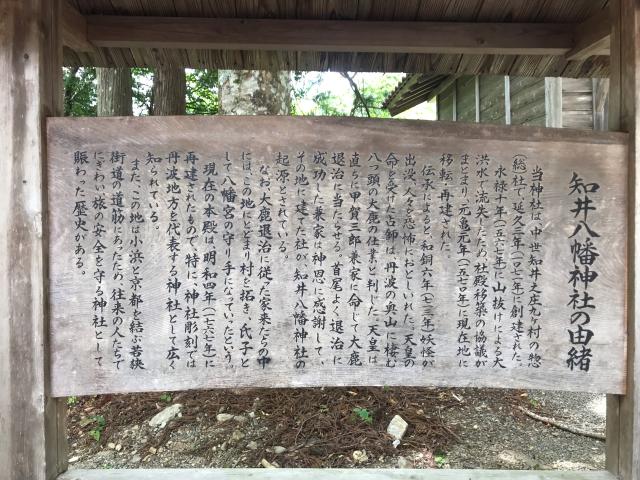 知井八幡神社の由緒
当神社は、中世知井之庄九ヶ村の惣
総社で、延久三年(一〇七一年)に創建された。
永禄十年(一五六七年)に山抜けによる大
洪水で流失したため、社殿移築の協議が
まとまり、元亀元年(一五七〇年)に現在地に
移転・再建された。
伝承によると、和銅六年(七一三年)妖怪が
出没、人々を恐怖におとしいれた。天皇の
命を受けた占師は、丹波の奥山に棲む
八つ頭の大鹿の仕業と判じた。天皇は
直ちに甲賀三郎兼家に命じて大鹿
退治に当たらせる。首尾よく、退治に
成功した兼家は神恩に感謝して、
その地に建てた社が、知井八幡神社の
起源とされている。
なお、大鹿退治に従った家来たちの中
には、この地にとどまり村を拓き、氏子と
して八幡宮の守り手になっていったという。
現在の本殿は、明和四年(一七六七年)に
再建されたもので、特に、神社彫刻では
丹波地方を代表する神社として広く
知られている。
また、この地は小浜と京都を結ぶ若狭
街道の道筋にあったため、往来の人たちで
にぎわい旅の安全を守る神社として
賑わった歴史がある。